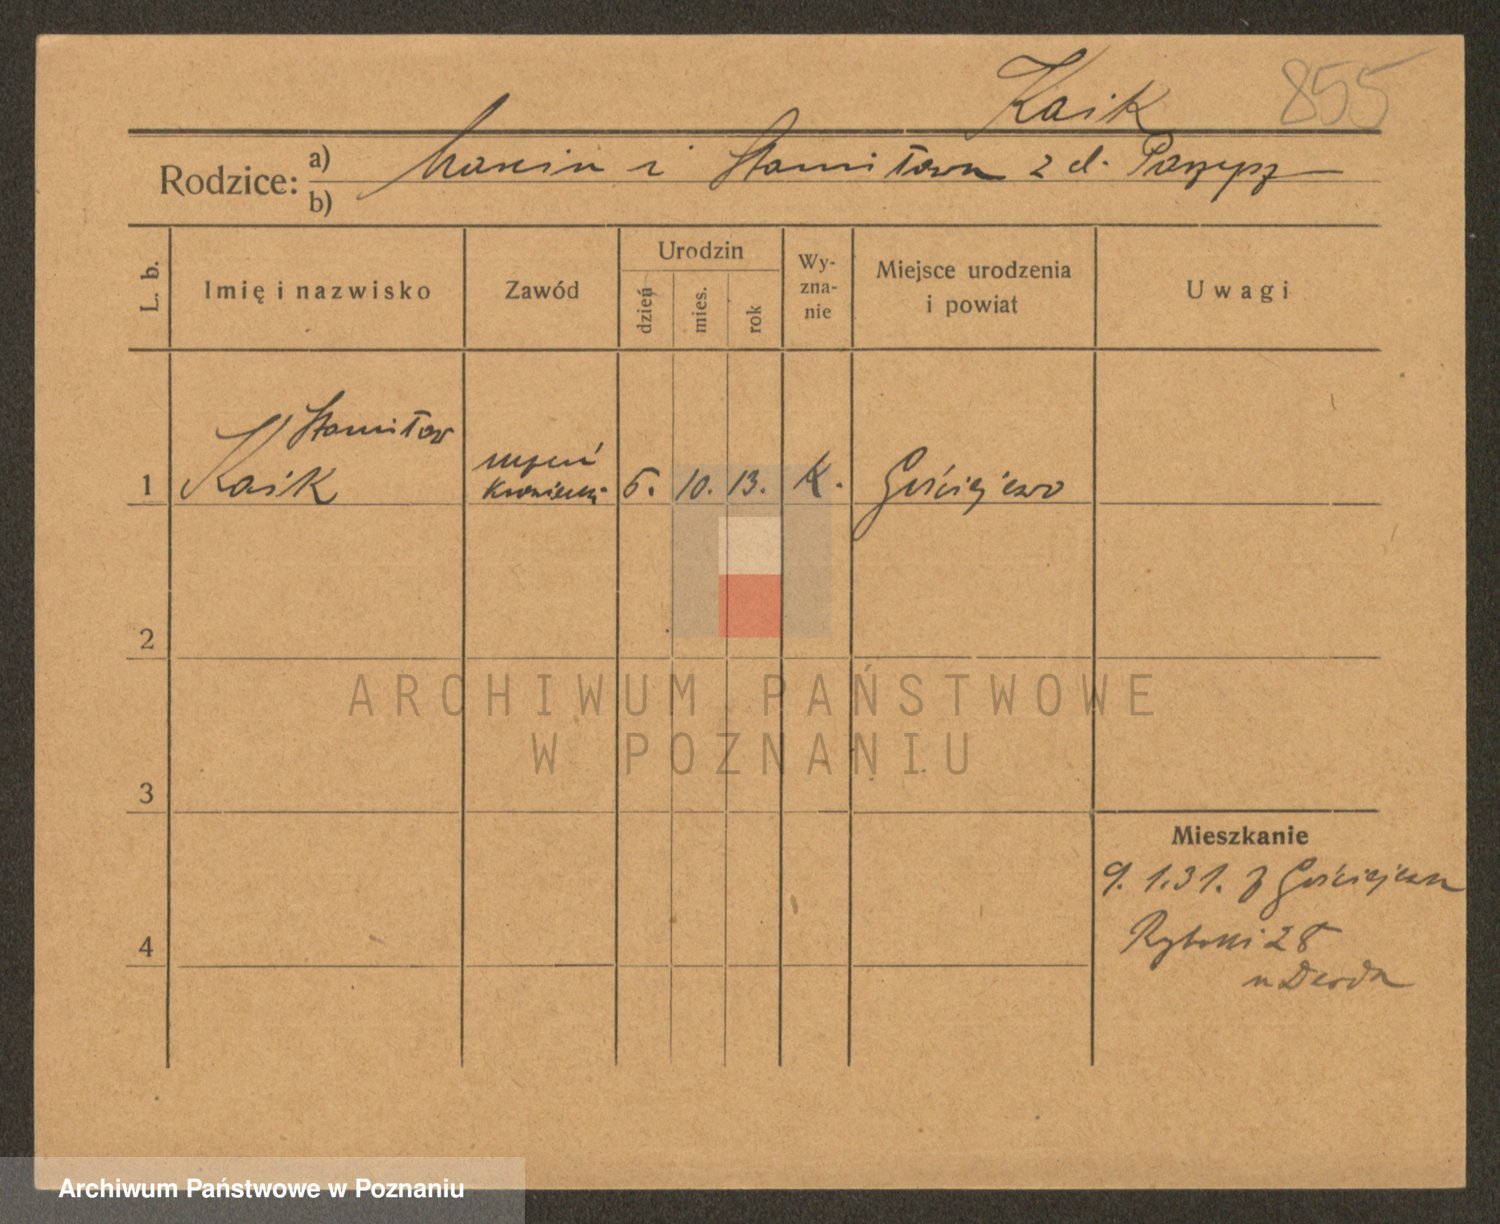 Kaik 855
Rodzice: a) Marcin i Stanisława z d. Parzysz
b)
L. b. Imię i nazwisko Zawód Urodzin dzień mies. rok Wy-zna-nie Miejsce urodzenia i powiat Uwagi
Stanisław
1 Kaik uczeń krawiecki 6. 10. 13. K. Gościejewo
2
3
4
Mieszkanie
9. 1. 31. z Gościejewa
Rybaki 28
u Derda
ARCHIWUM PAŃSTWOWE
W POZNANIU
Archiwum Państwowe w Poznaniu